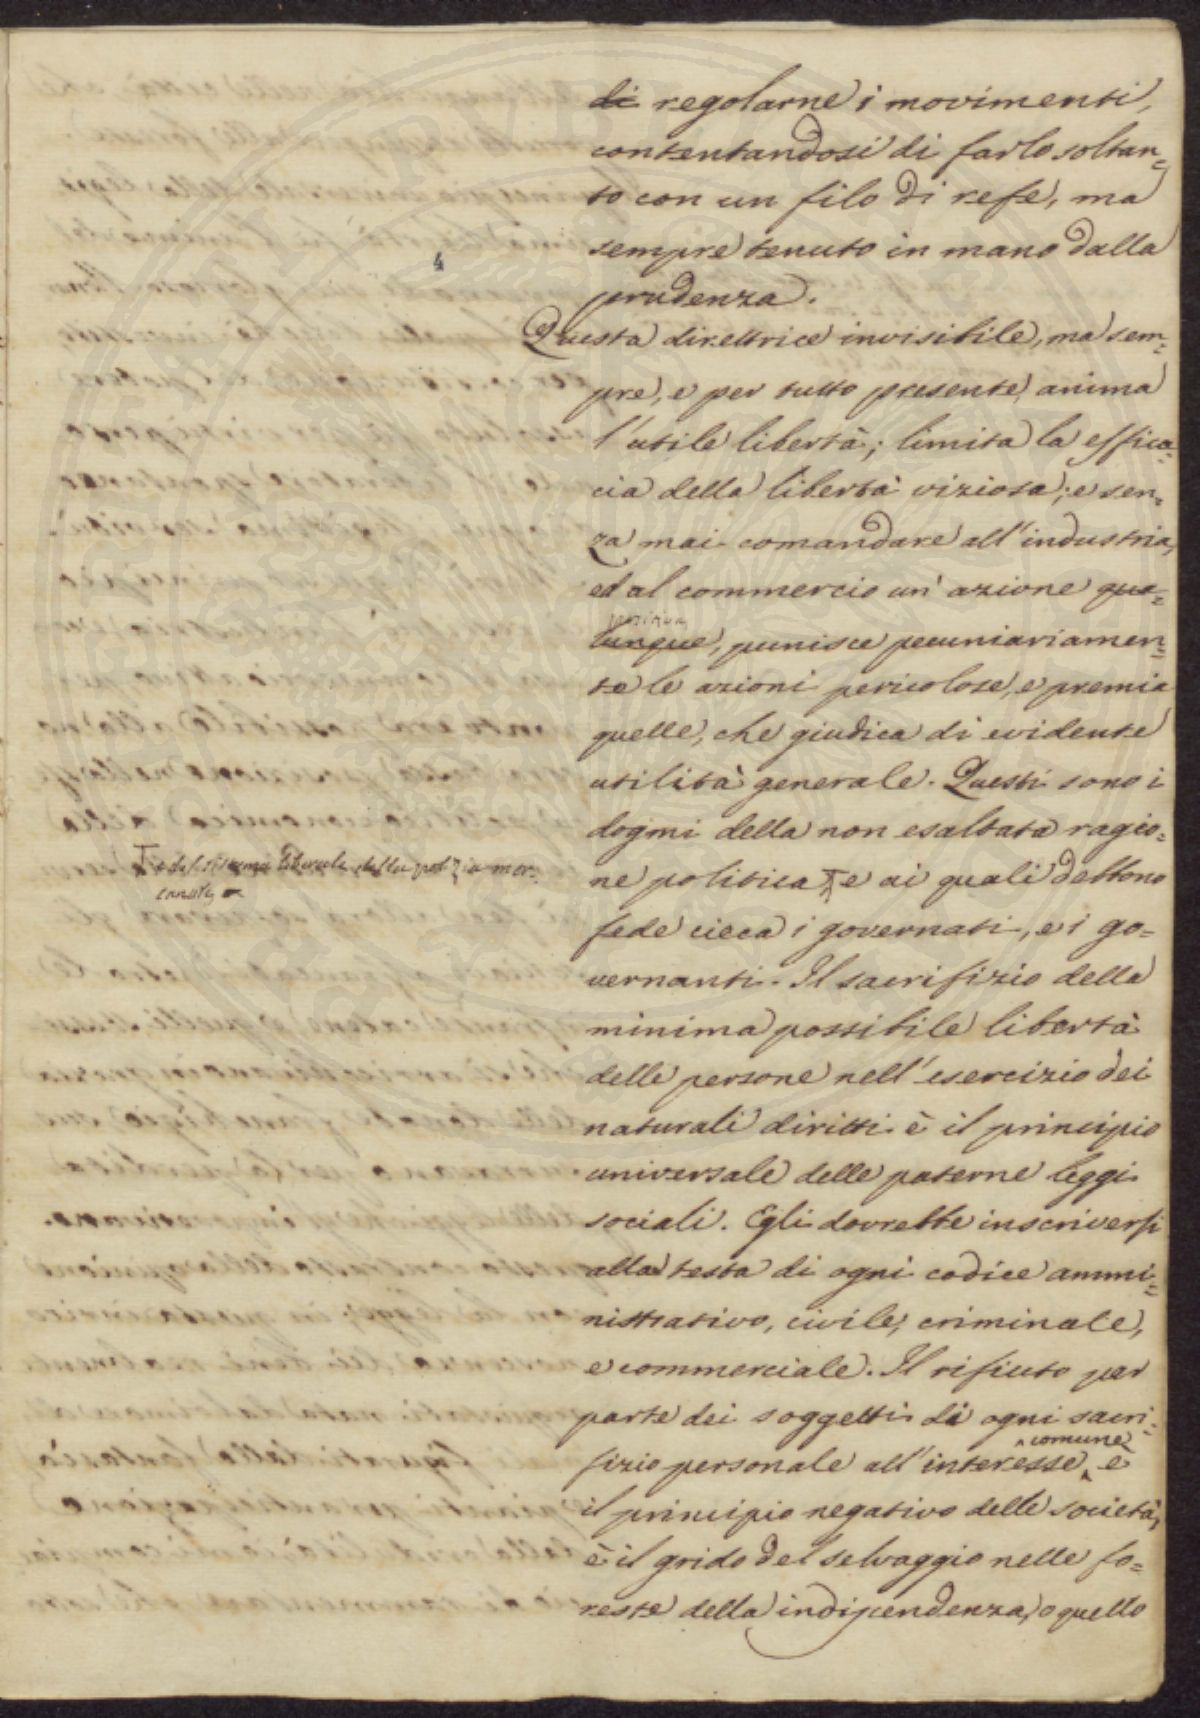 di regolarne i movimenti,
contentandosi di farlo soltan=
to con un filo di refe, ma
sempre tenuto in mano dalla
4
prudenza.
Questa direttrice invisibile, ma sem=
pre, e per tutto presente, anima
l'utile libertà; limita la effica=
cia della libertà viziosa; e sen=
za mai comandare all'industria,
ed al commercio un'azione qua=
positiva
lunque, punisce pecuniariamen=
te le azioni pericolose, e premia
quelle, che giudica di evidente
utilità generale. Questi sono i
dogmi della non esaltata ragio=
ne politica e ai quali debbono
e del sistema liberale della polizia mer=
cantile
fede cieca i governati, e i go=
vernanti. Il sacrifizio della
minima possibile libertà
delle persone nell'esercizio dei
naturali diritti è il principio
universale delle paterne leggi
sociali. Egli dovrebbe inscriversi
alla testa di ogni codice ammi=
nistrativo, civile, criminale,
e commerciale. Il rifiuto per
parte dei soggetti di ogni sacri=
comune
fizio personale all'interesse e
il principio negativo delle società,
è il grido del selvaggio nelle fo=
reste della indipendenza, o quello